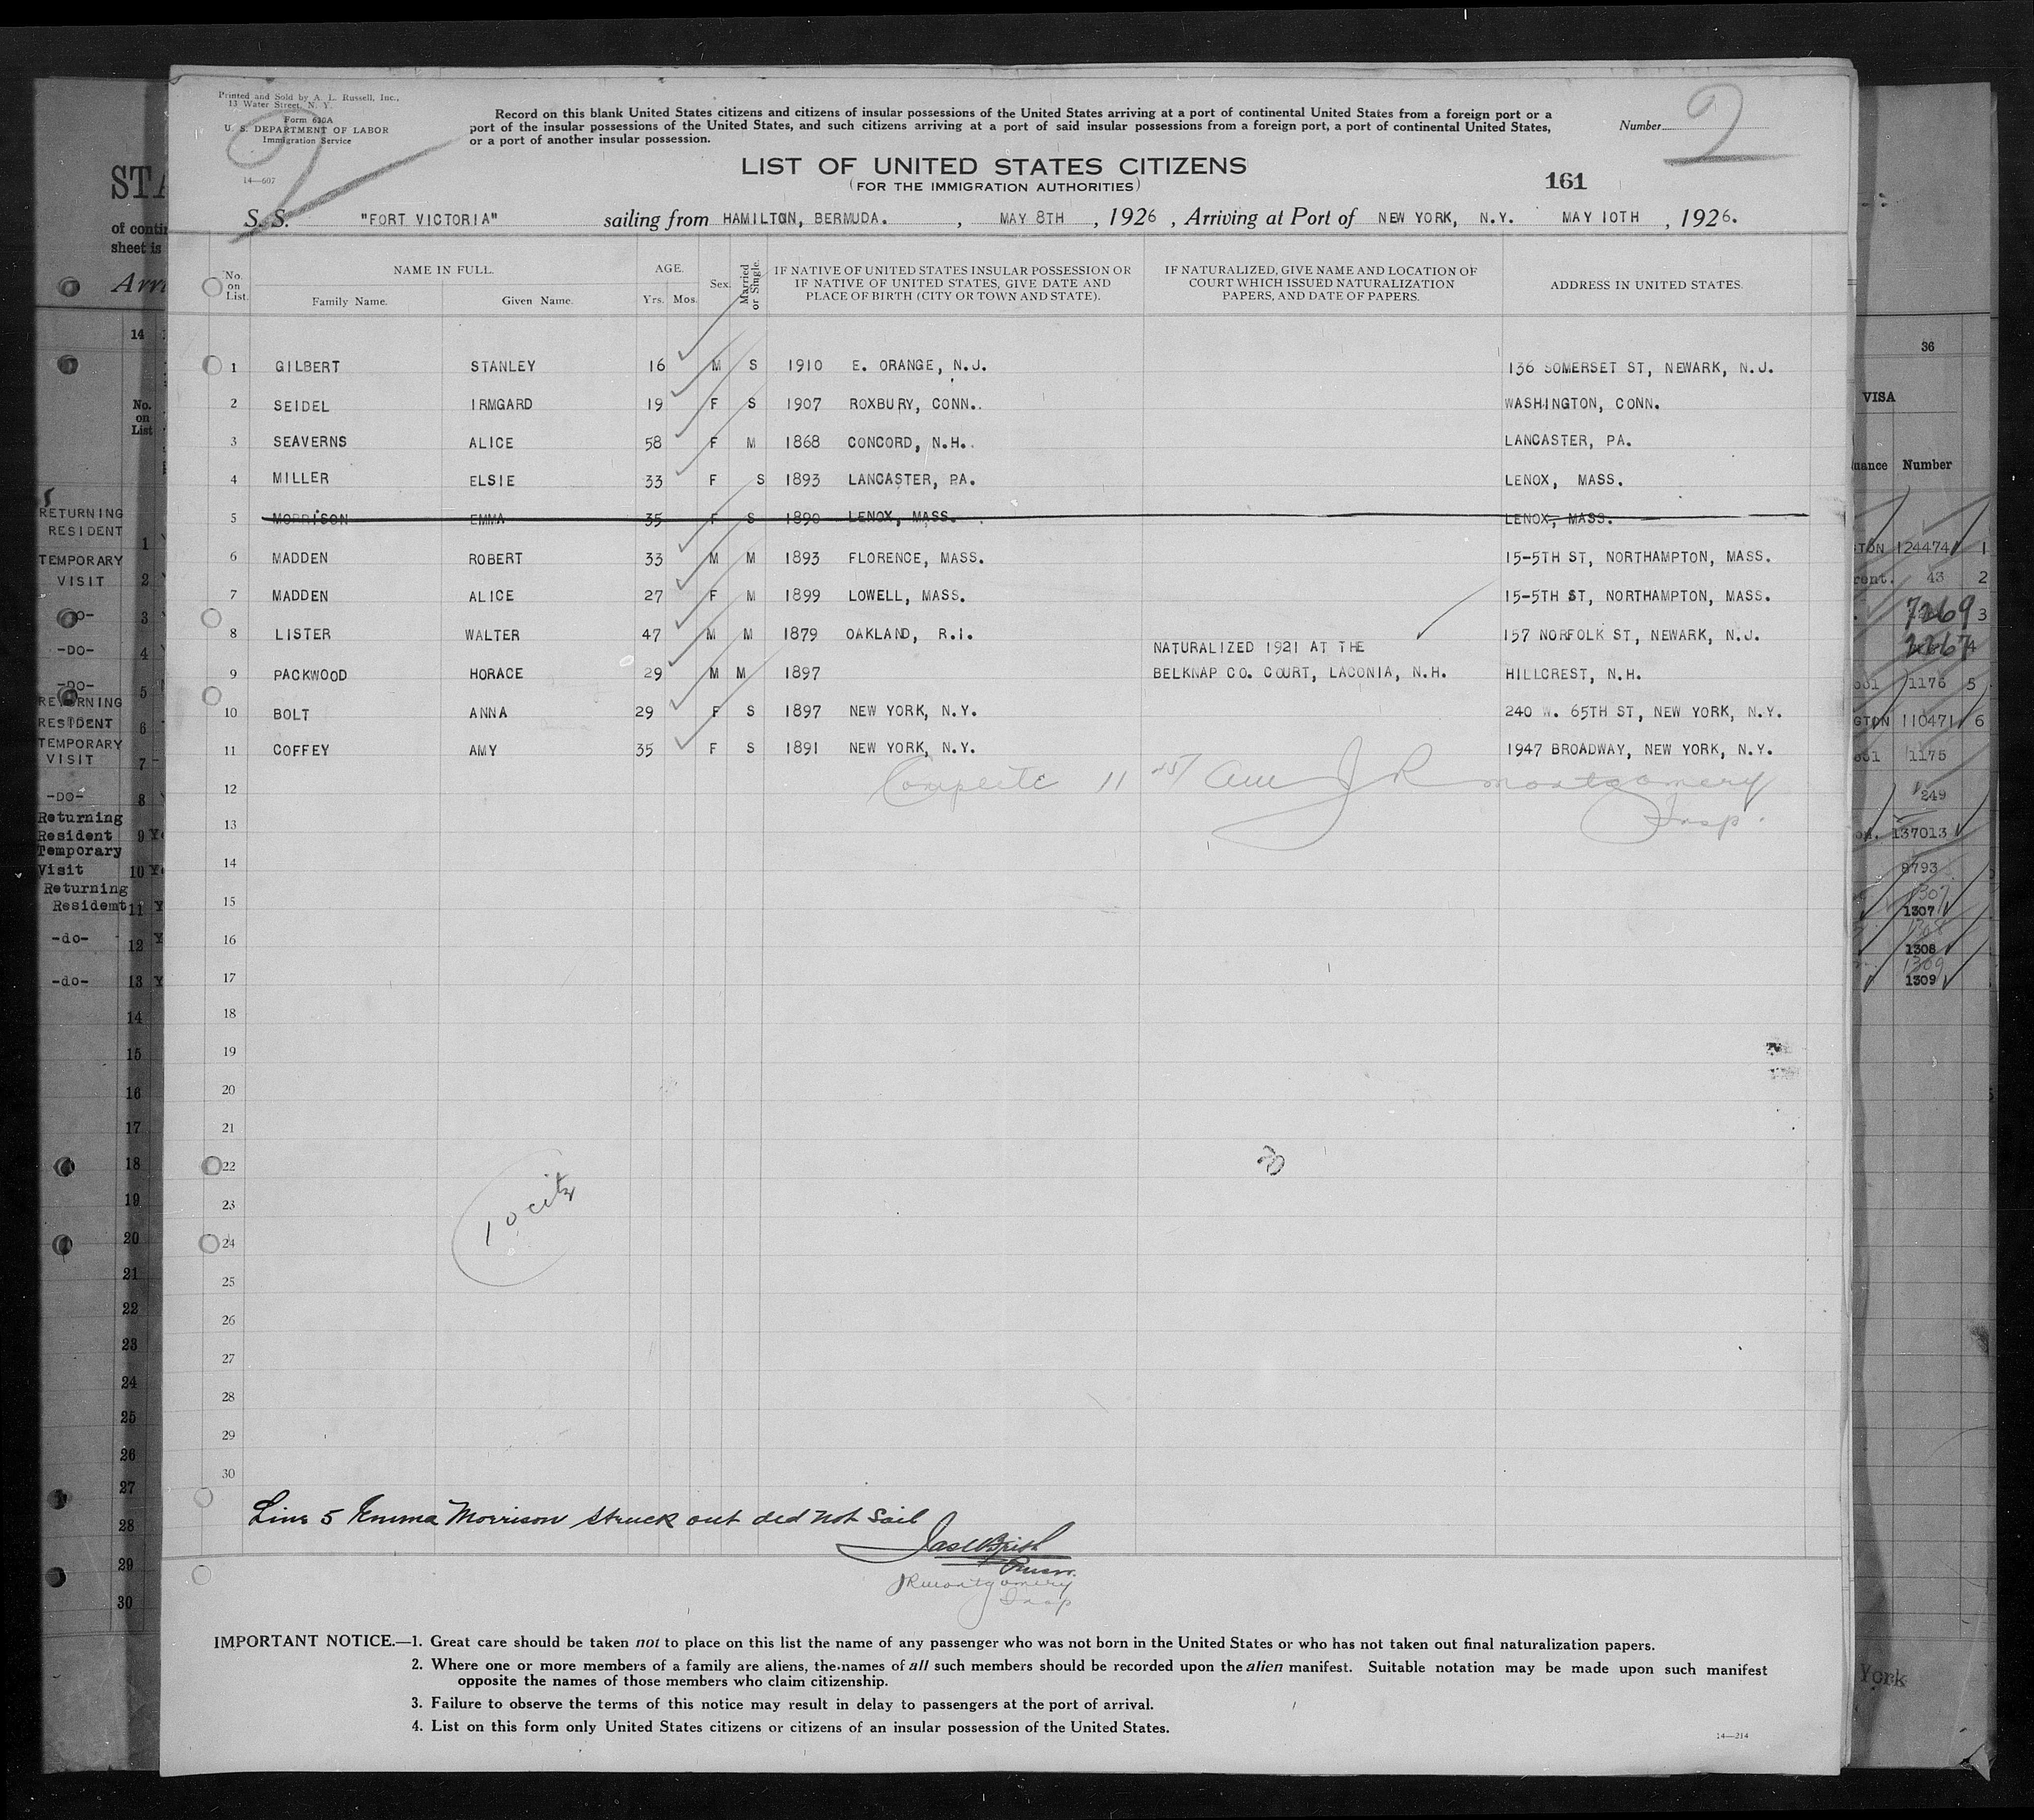 Printed and Sold by A. L. Russell, Inc.,
13 Water Street, N. Y.
Form 630A
U. S. DEPARTMENT OF LABOR
Immigration Service
14—607
Record on this blank United States citizens and citizens of insular possessions of the United States arriving at a port of continental United States from a foreign port or a
port of the insular possessions of the United States, and such citizens arriving at a port of said insular possessions from a foreign port, a port of continental United States,
or a port of another insular possession.
Number 2
LIST OF UNITED STATES CITIZENS
(FOR THE IMMIGRATION AUTHORITIES)
161
S. S. "FORT VICTORIA" sailing from HAMILTON, BERMUDA. , MAY 8TH , 1926 , Arriving at Port of NEW YORK, N.Y. MAY 10TH , 1926.
No. on List. NAME IN FULL. Family Name. Given Name. AGE. Yrs. Mos. Sex. Married or Single. IF NATIVE OF UNITED STATES INSULAR POSSESSION OR IF NATIVE OF UNITED STATES, GIVE DATE AND PLACE OF BIRTH (CITY OR TOWN AND STATE). IF NATURALIZED, GIVE NAME AND LOCATION OF COURT WHICH ISSUED NATURALIZATION PAPERS, AND DATE OF PAPERS. ADDRESS IN UNITED STATES.
1 GILBERT STANLEY 16 M S 1910 E. ORANGE, N.J. 136 SOMERSET ST, NEWARK, N.J.
2 SEIDEL IRMGARD 19 F S 1907 ROXBURY, CONN.. WASHINGTON, CONN.
3 SEAVERNS ALICE 58 F M 1868 CONCORD, N.H.. LANCASTER, PA.
4 MILLER ELSIE 33 F S 1893 LANCASTER, PA. LENOX, MASS.
5 MORRISON EMMA 35 F S 1890 LENOX, MASS. LENOX, MASS.
6 MADDEN ROBERT 33 M M 1893 FLORENCE, MASS. 15-5TH ST, NORTHAMPTON, MASS.
7 MADDEN ALICE 27 F M 1899 LOWELL, MASS. 15-5TH ST, NORTHAMPTON, MASS.
8 LISTER WALTER 47 M M 1879 OAKLAND, R.I. 157 NORFOLK ST, NEWARK, N.J.
NATURALIZED 1921 AT THE
9 PACKWOOD HORACE 29 M M 1897 BELKNAP CO. COURT, LACONIA, N.H. HILLCREST, N.H.
10 BOLT ANNA 29 F S 1897 NEW YORK, N.Y. 240 W. 65TH ST, NEW YORK, N.Y.
11 COFFEY AMY 35 F S 1891 NEW YORK, N.Y. 1947 BROADWAY, NEW YORK, N.Y.
Complete 11 J R Montgomery
12
Insp.
13
14
15
16
17
18
19
20
21
22
23
24
25
26
27
28
29
30
10 citz
Line 5 Emma Morrison struck out did not sail
JRMontgomery
Insp
IMPORTANT NOTICE.—1. Great care should be taken not to place on this list the name of any passenger who was not born in the United States or who has not taken out final naturalization papers.
2. Where one or more members of a family are aliens, the names of all such members should be recorded upon the alien manifest. Suitable notation may be made upon such manifest
opposite the names of those members who claim citizenship.
3. Failure to observe the terms of this notice may result in delay to passengers at the port of arrival.
4. List on this form only United States citizens or citizens of an insular possession of the United States.
14—214
of
sheet is
14
No.
on
List
RETURNING
RESIDENT
1
TEMPORARY
VISIT 2
-DO- 3
-DO- 4
-DO- 5
RETURNING
RESIDENT 6
TEMPORARY
VISIT 7
-DO- 8
Returning
Resident 9
Temporary
Visit 10
Returning
Residemt 11
-do- 12
-do- 13
14
15
16
17
18
19
20
21
22
23
24
25
26
27
28
29
30
36
VISA
Number
124474 1
43 2
7269 3
2267 4
1176 5
110471 6
1175
249
137013
8793
1307
1307
1308
1309
1309
York